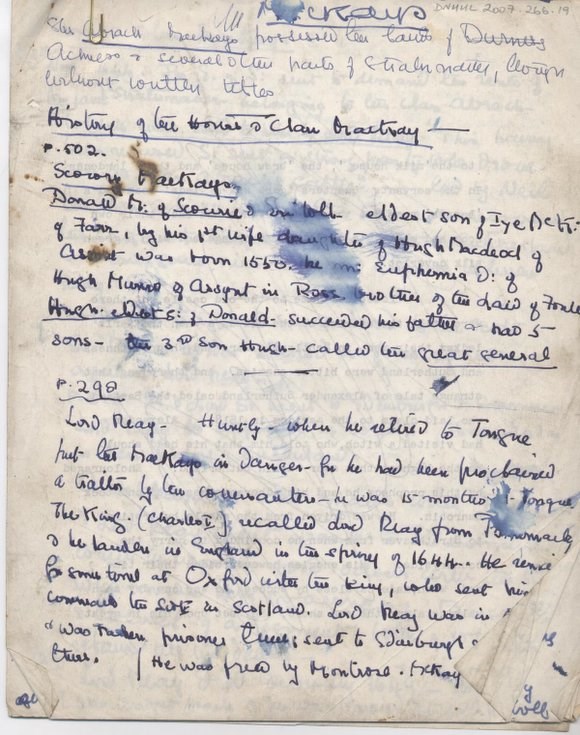 Mackays DNHHL 2007. 266.19
The Abrach Mackays possessed the lands of Durness
Achness & several other parts of Strathnaver, though
without written titles
History of the House & Clan Mackay
P. 502.
Scoury Mackays
Donald M: of Scourie & eldest son of Iye McK:
of Farr, by his 1st wife daughter of Hugh Macleod of
Assint was born 1550. he m: Euphemia D: of
Hugh Munro of Assynt in Ross, brother of the laird of
Hugh eldest S: of Donald succeeded his father & had 5
sons - the 3rd son Hugh - called the great general
P. 298
Lord Reay - Huntly - when he retired to Tongue
put the Mackays in Danger - for he had been proclaimed
a traitor by the covenanters - he was 15 months Tongue
The King. (Charles I) recalled Lord Reay from Denmark
& he landed in England in the spring of 1644. He
for some time at Oxford with the King, who sent him
command the in Scotland. Lord Reay was in
& was taken prisoner sent to Edinburgh
there. / He was freed by Montrose.